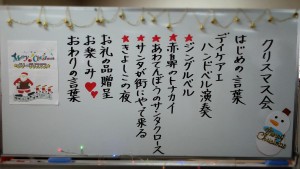 クリスマス会
はじめの言葉
デイケアⅠ
ハンドベル演奏
★ジングルベル
★赤鼻のトナカイ
★あわてんぼうのサンタクロース
★サンタが街にやって来る
★きよしこの夜
お礼の品贈呈
お楽しみ♥♥
おわりの言葉
Christmas